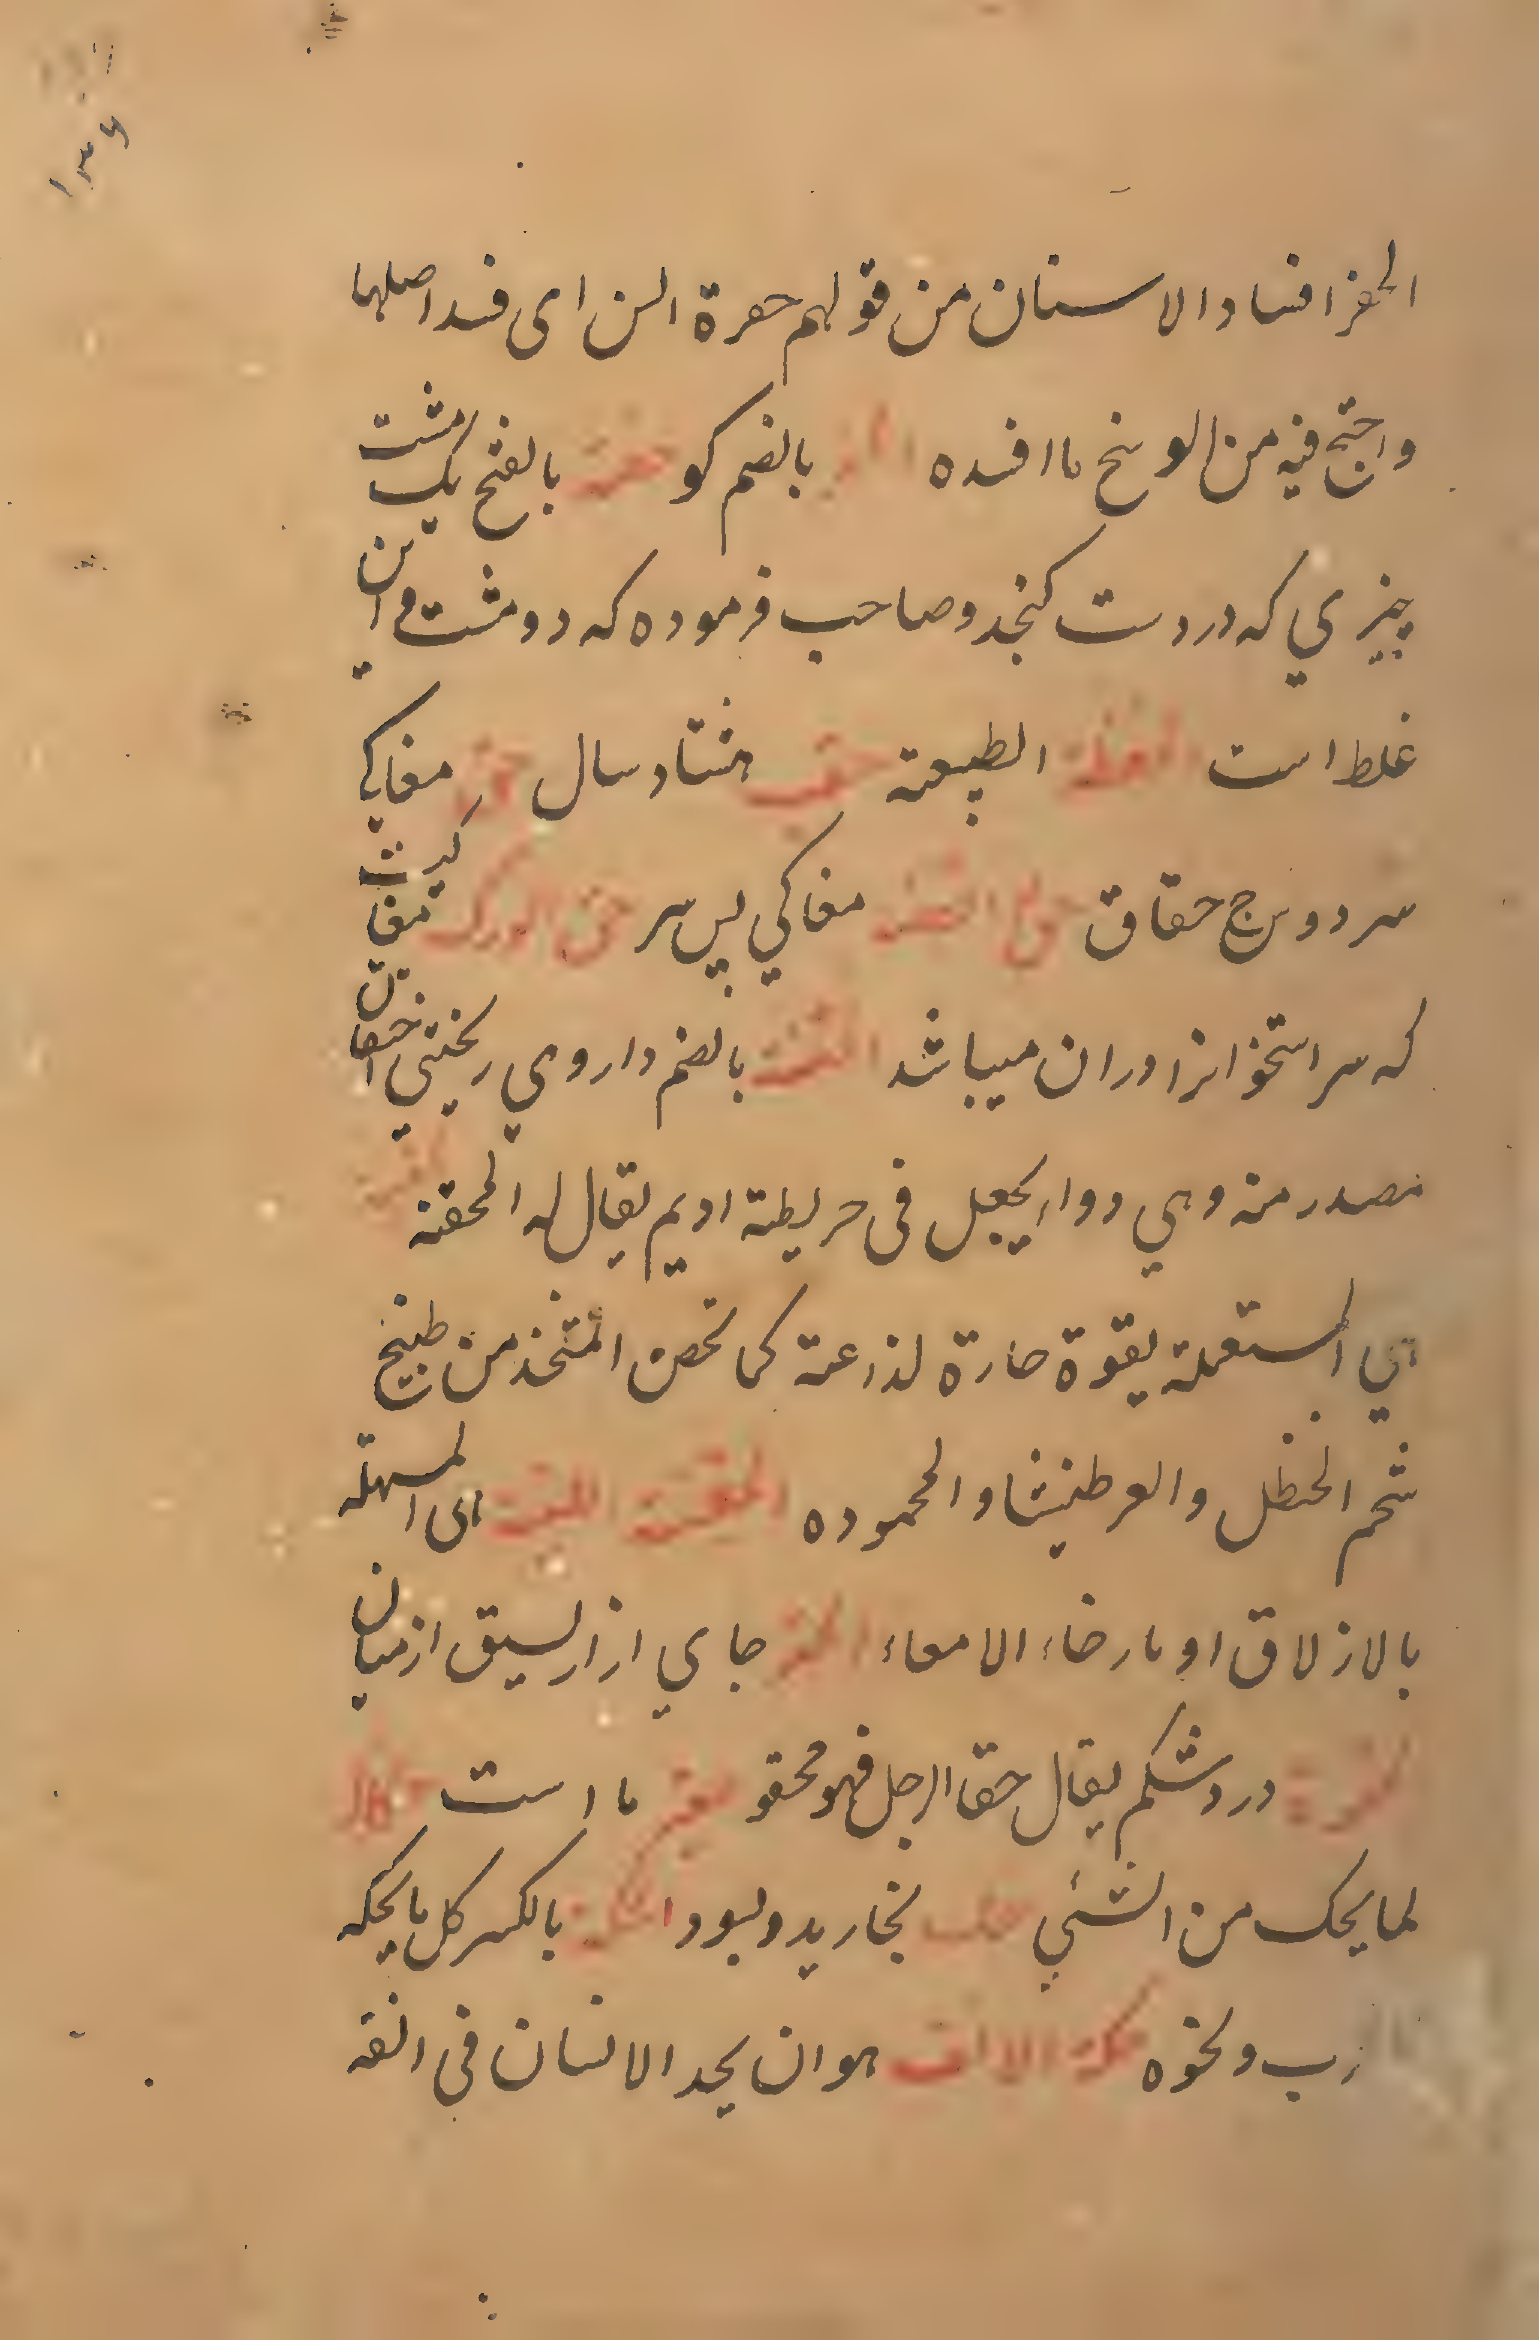 ۱۳۶
الحفر افساد الاسنان من قولهم حفرة السن ای فسد اصلها
واحتج فیه من الوسخ ما افسده بالضم کو حفنة بالفتح یک مشت
چیزی که در دست کنجد و صاحب فرموده که دو مشت و این
غلط است الطبیعته حقب هشتاد سال حق مغاکی
سر دو برج حقاق مغاکی پس سر حق الورک مغا کیست
که سر استخوانرا دران میباشد الحقنة بالضم داروی ریختنی احتقان
مصدر منه وهی دواء یجعل فی خریطة ادیم یقال له المحقنه
ای المستعملة بقوة حارة لذاعة کما تحصن المتخذ من طبیخ
شحم الحنظل والعرطنیثا والمحموده الحقنة اللینة ای المسهلة
بالازلاق او بارخاء الامعاء الحقو جای ازار بستن از میان
الحقوة درد شکم یقال حقا الرجل فهو محقو ما است
لما یحک من الشئی بخارید وبسود الحکة بالکسر کل ما یحکه
رب ونحوه حکة الانف هو ان یجد الانسان فی انفه